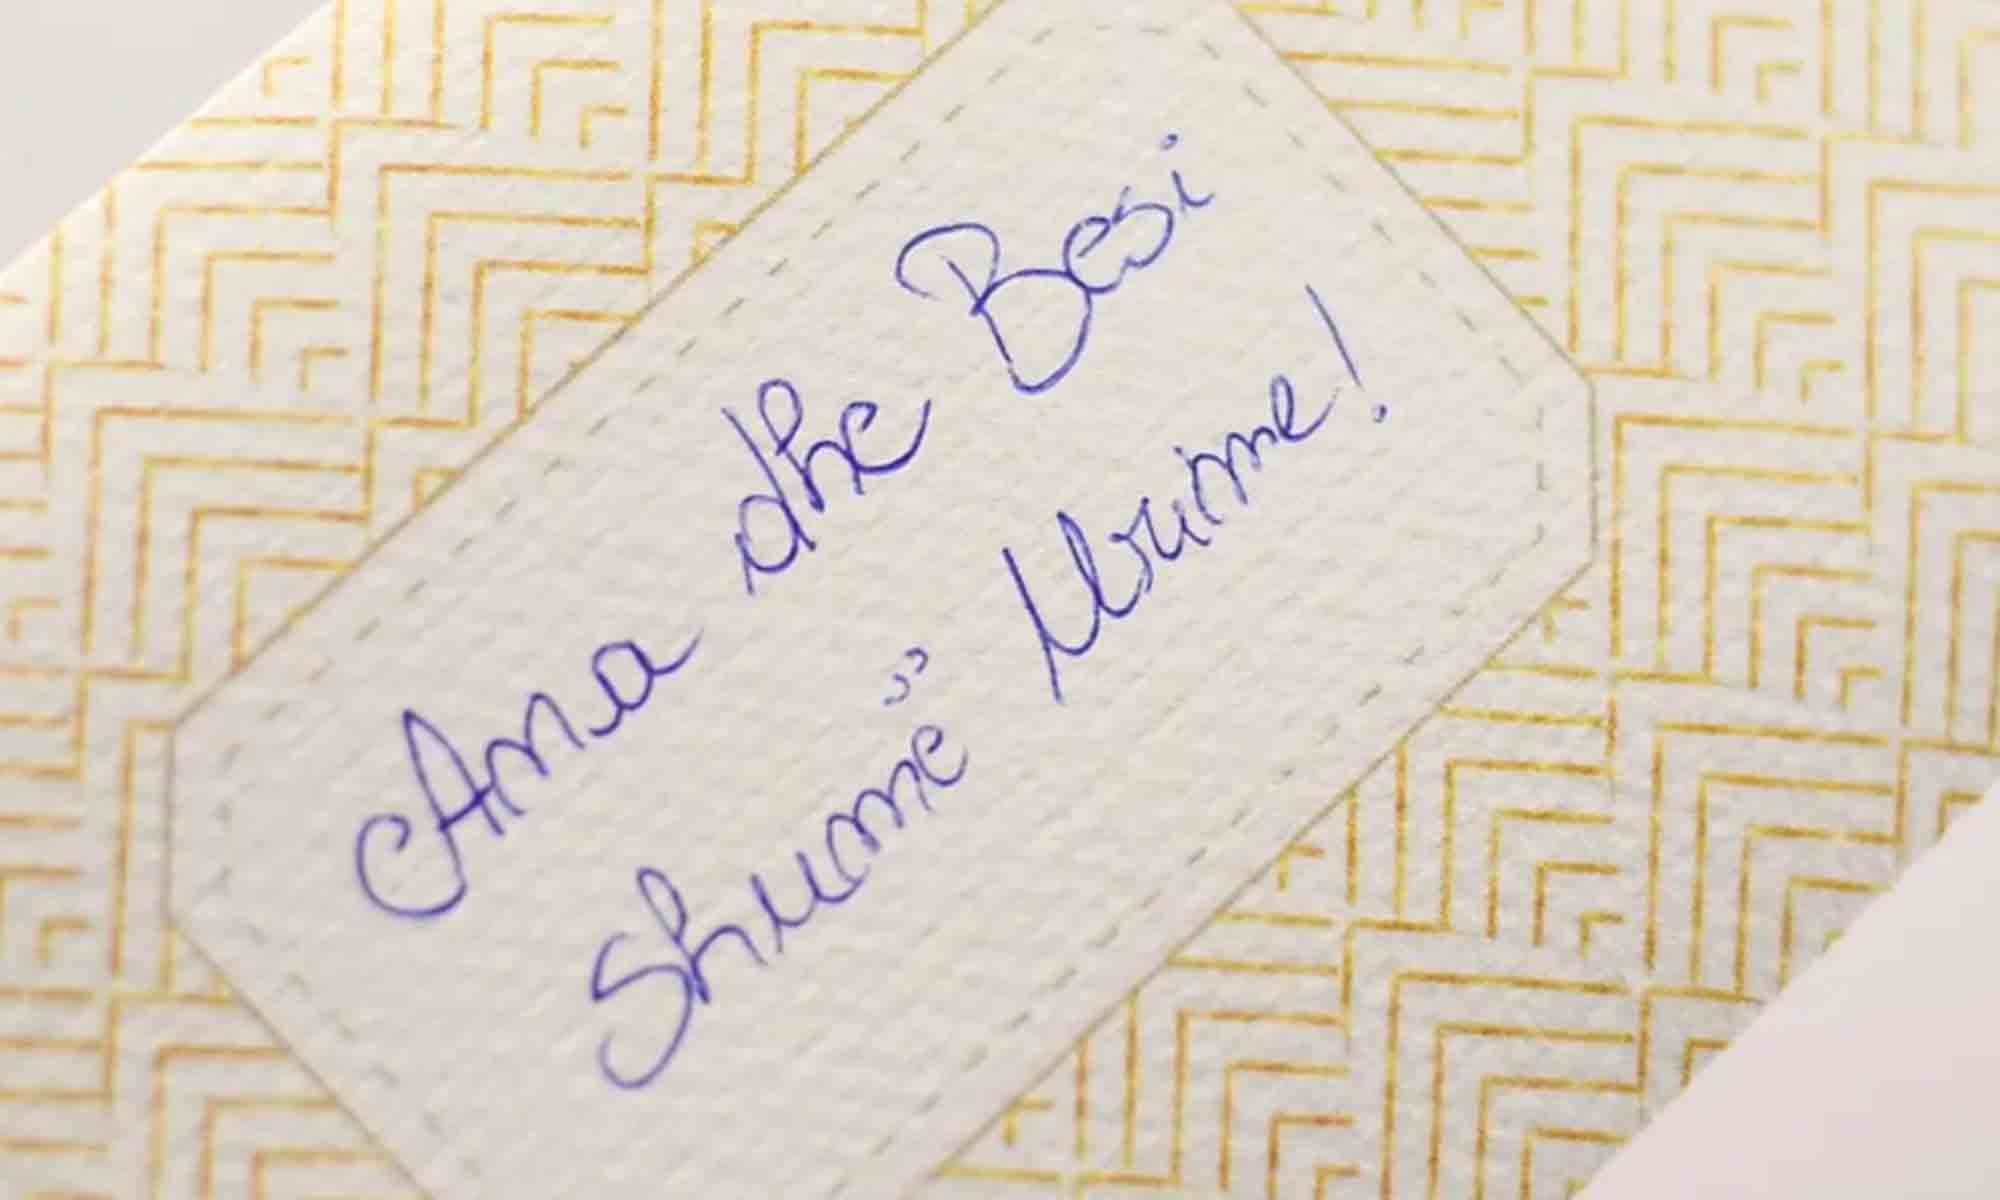 Ana dhe Besi
Shumë Urime!